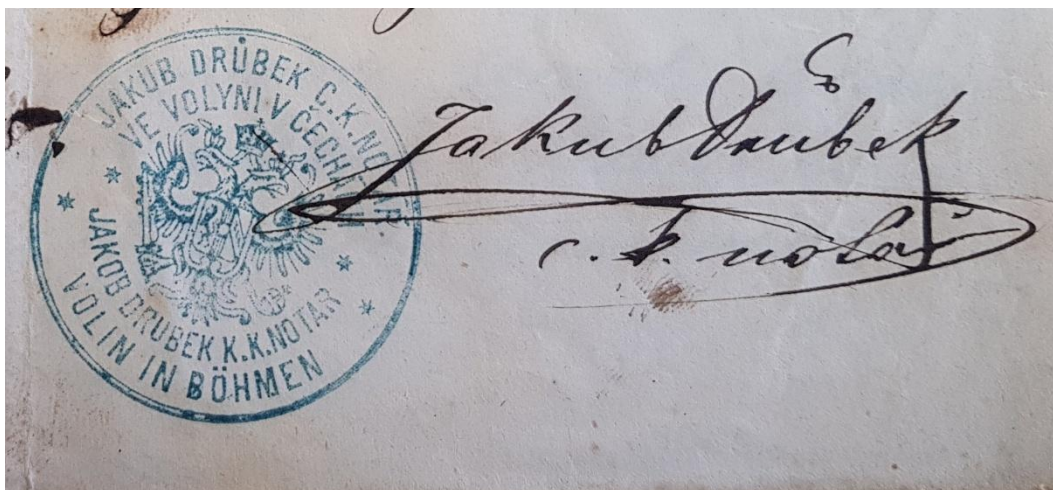 JAKUB DRŮBEK C.K. NOTÁŘ
VE VOLYNI V ČECHÁCH
JAKOB DRUBEK K.K. NOTAR
VOLIN IN BÖHMEN
Jakub Drůbek
c. k. notář